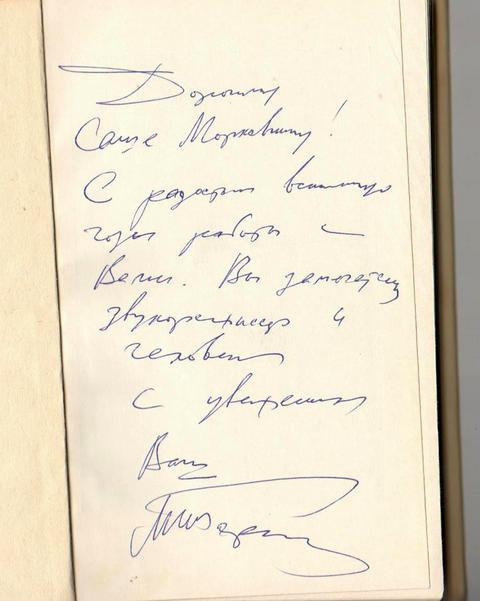 Дорогому
Саше Морковкину!
С радостью вспоминаю
годы работы с
Вами. Вы замечательный
звукорежиссер и
человек
С уважением
Ваш